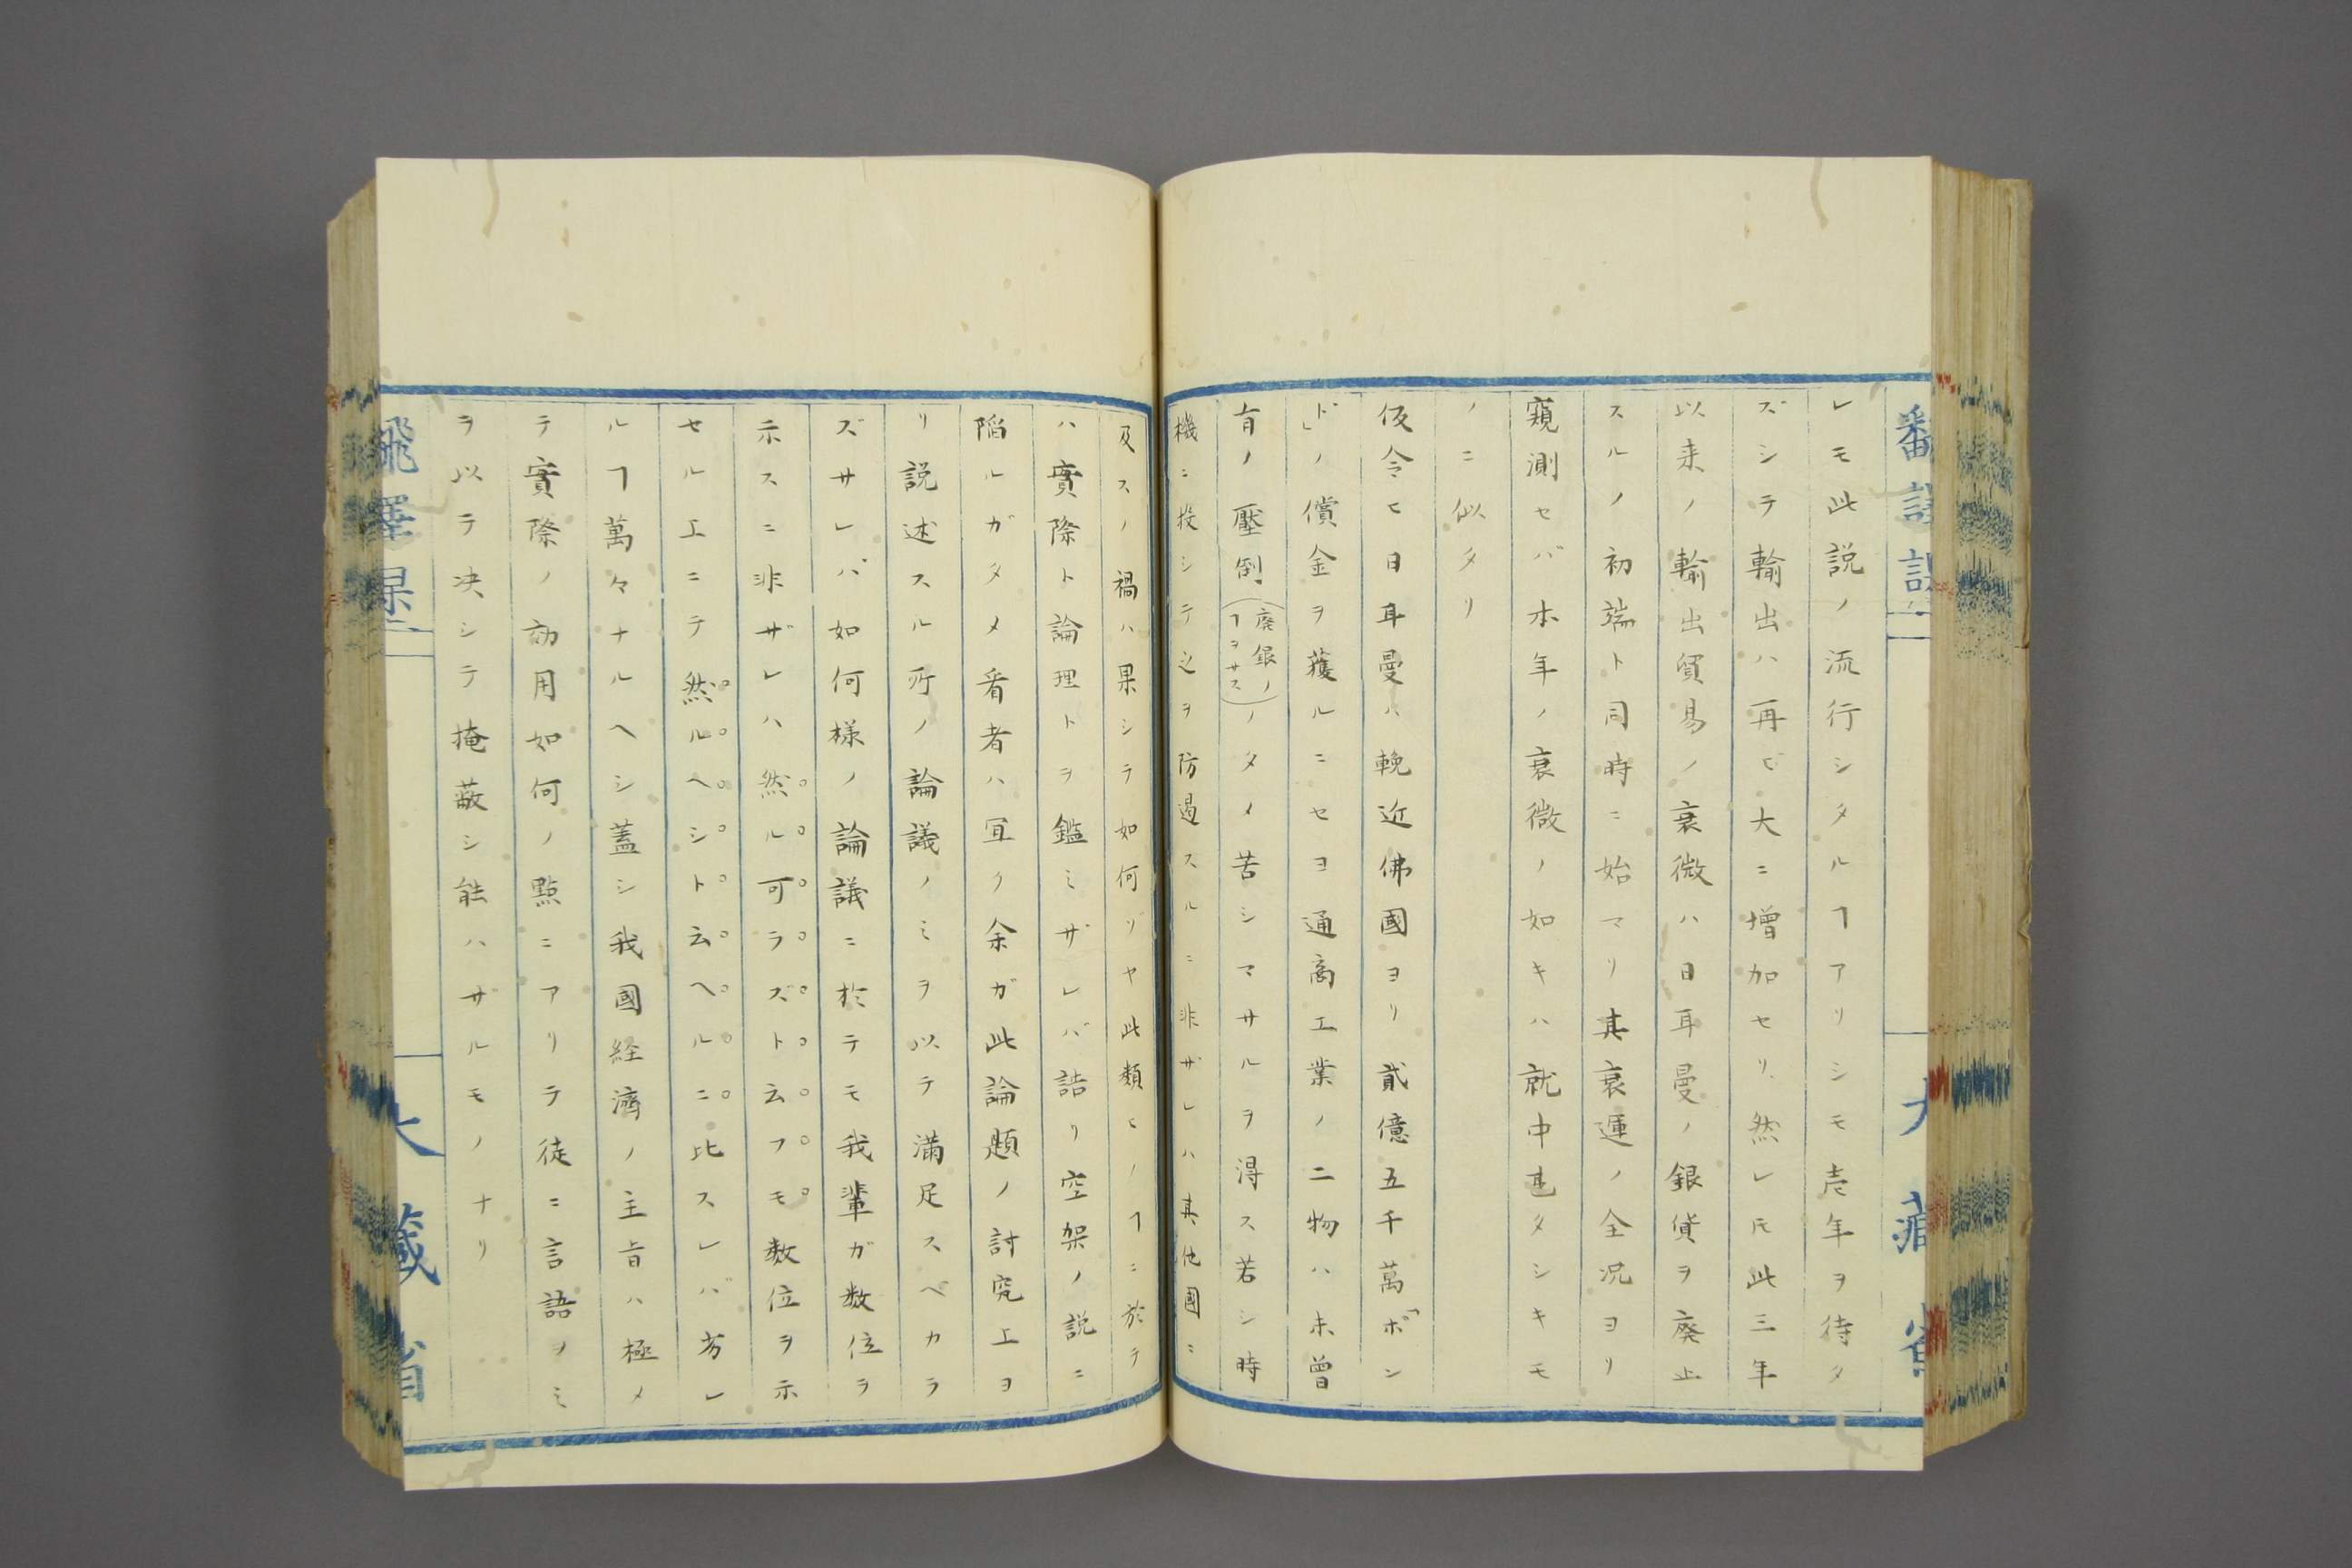 レモ此説ノ流行シタルヿアリシモ壱年ヲ待タ
ズシテ輸出ハ再ビ大ニ増加セリ然レ𪜈此三年
以来ノ輸出貿易ノ衰微ハ日耳曼ノ銀貨ヲ廃止
スルノ初端ト同時ニ始マリ其衰運ノ全况ヨリ
窺測セバ本年ノ衰微ノ如キハ就中甚タシキモ
ノニ似タリ
仮令ヒ日耳曼ハ輓近佛國ヨリ貳億五千萬「ボン
ド」ノ償金ヲ獲ルニセヨ通商工業ノ二物ハ未曾
有ノ壓倒(廃銀ノヿヲサス)ノタメ苦シマサルヲ得ス若シ時
機ニ投シテ之ヲ防遏スルニ非ザレハ其他國ニ
及スノ禍ハ果シテ如何ゾヤ此類ヒノヿニ於テ
ハ實際ト論理トヲ鑑ミザレバ詰リ空架ノ説ニ
陥ルガタメ看者ハ冝ク余ガ此論題ノ討究上ヨ
リ説述スル所ノ論議ノミヲ以テ満足スベカラ
ズサレバ如何様ノ論議ニ於テモ我輩ガ数位ヲ
示スニ非ザレハ然ル可ラズト云フモ数位ヲ示
セル上ニテ然ルヘシト云ヘルニ比スレバ劣レ
ルヿ萬々ナルヘシ蓋シ我國経濟ノ主旨ハ極メ
テ實際ノ効用如何ノ點ニアリテ徒ニ言語ヲミ
ヲ以テ决シテ掩蔽シ能ハザルモノナリ
大藏省